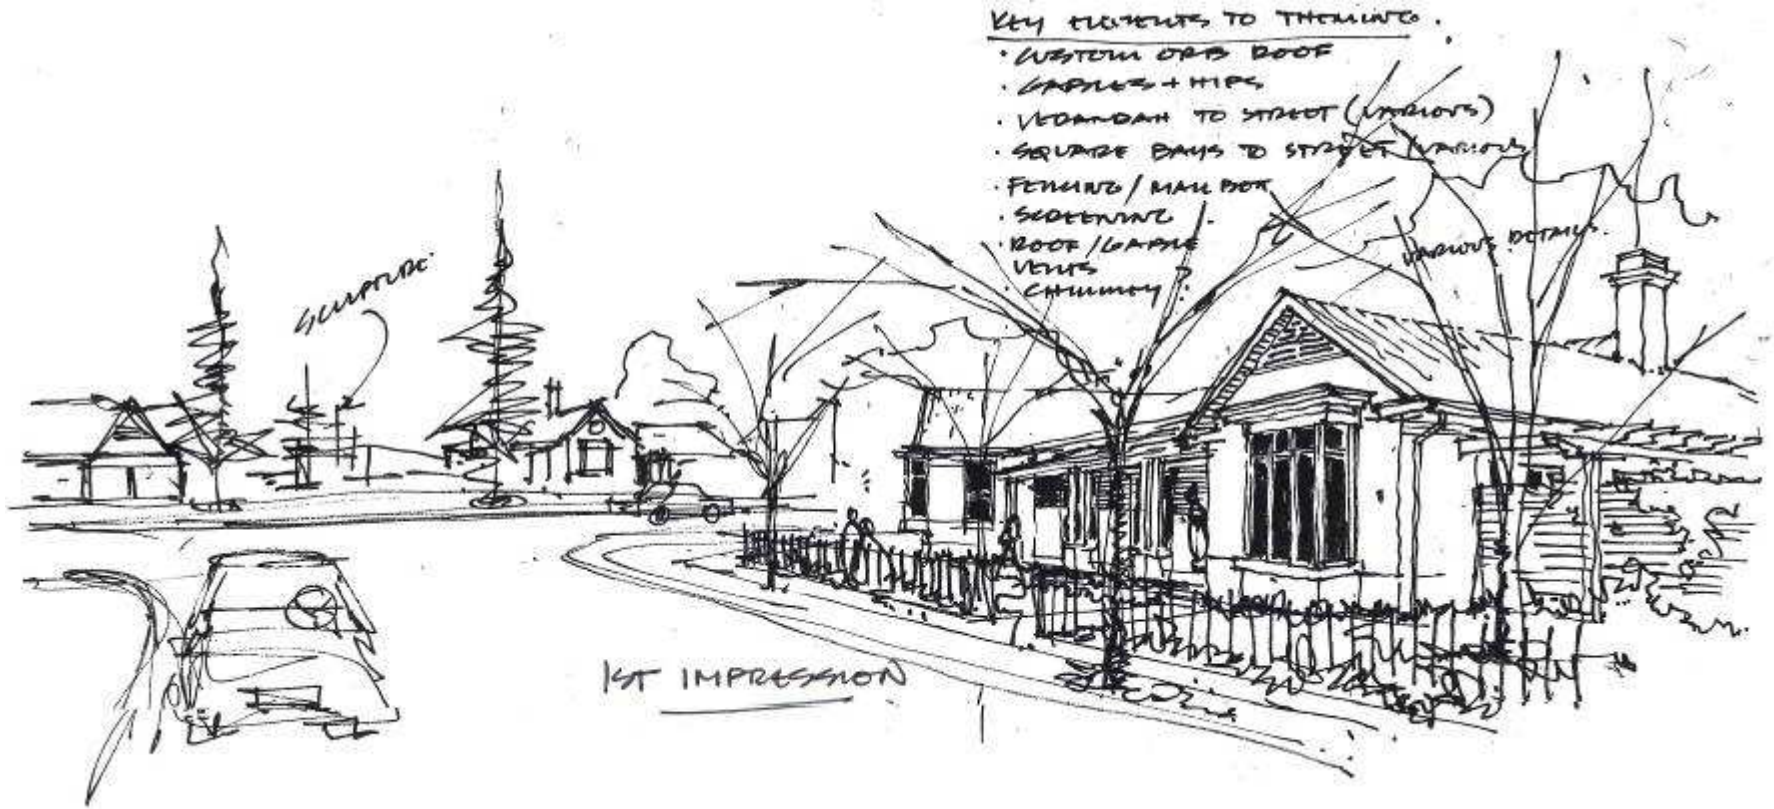 KEY ELEMENTS TO THEMING.
· CUSTOM ORB ROOF
· GABLES + HIPS
· VERANDAH TO STREET (VARIOUS)
· SQUARE BAYS TO STREET (VARIOUS)
· FENCING / MAIL BOX
· SCREENING
· ROOF / GABLE
VENTS
· CHIMNEY
VARIOUS DETAILS.
SCULPTURE
1ST IMPRESSION